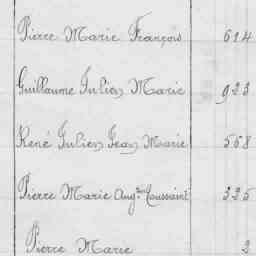 Pierre Marie François 614
Guillaume Julien Marie 923
René Julien Jean Marie 568
Pierre Marie Aug.^tin Toussaint 325
Pierre Marie 2